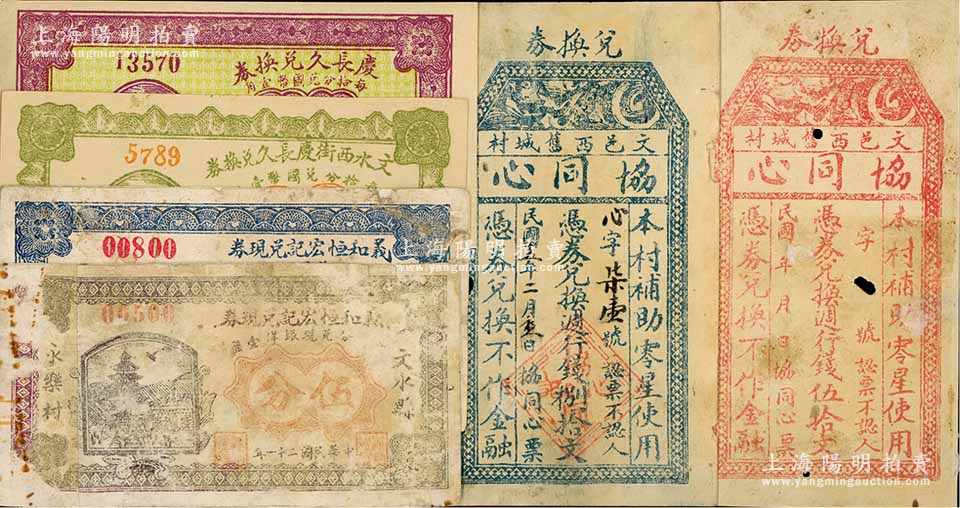 上海陽明拍賣
13570
券換兌久長慶
5789
券換兌久長慶街西水文
00800
券現兌記宏恒和義
00500
券現兌記宏恒和義
文水縣
水樂村
伍分
年一十二國民華中
券換兌
村城舊西邑文
心同協
本村補助零星使用
心字柒壹號 認票不認人
憑券兌換通行錢捌拾文
民國五年二月五日 協同心票
憑券兌換不作金融
券換兌
村城舊西邑文
心同協
本村補助零星使用
字 號 認票不認人
憑券兌換通行錢伍拾文
民國 年 月 日 協同心票
憑券兌換不作金融
上海陽明拍賣
www.yangmingauction.com
上海陽明拍賣
www.yangmingauction.com